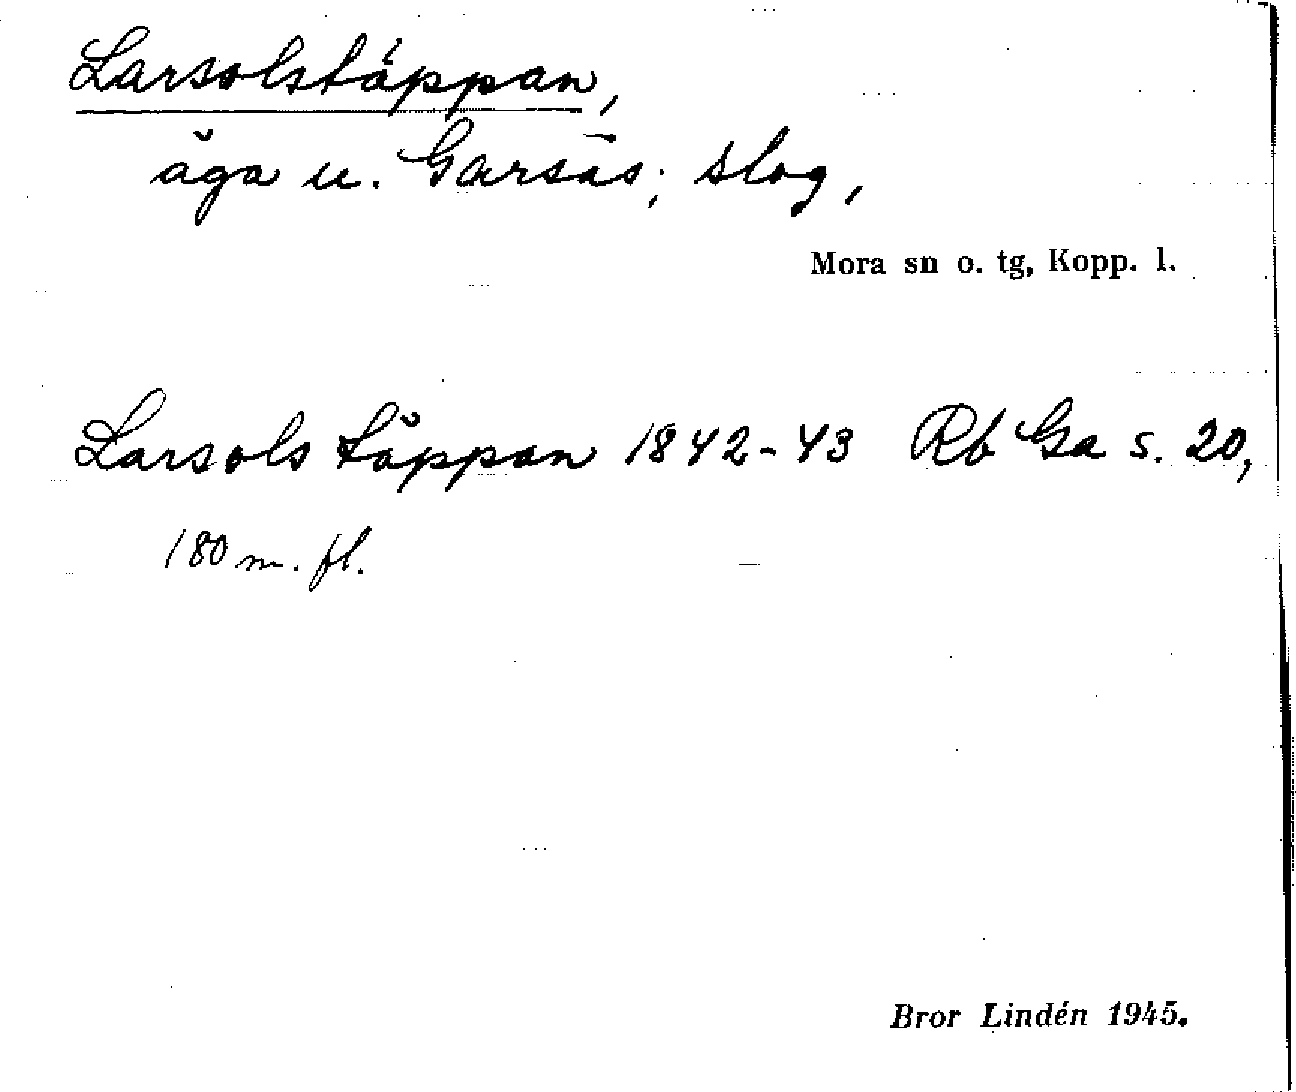 Larsolstäppan,
äga u. Garsås; slog,
Mora sn o. tg, Kopp. l.
Larsols täppan 1842-43 Rb Ga s. 20,
180 m. fl.
Bror Lindén 1945.